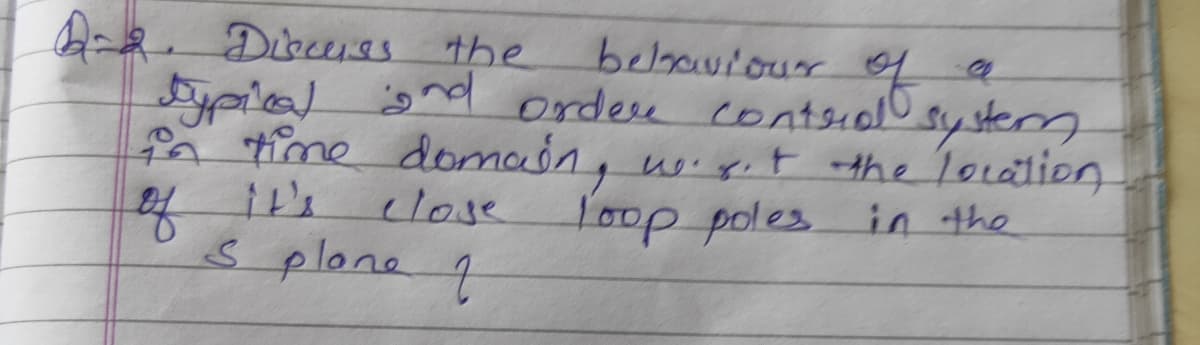 Q=2. Discuss the behaviour of a
typical 2nd order control system
in time domain, w.r.t the location
of it's close loop poles in the
s plane ?